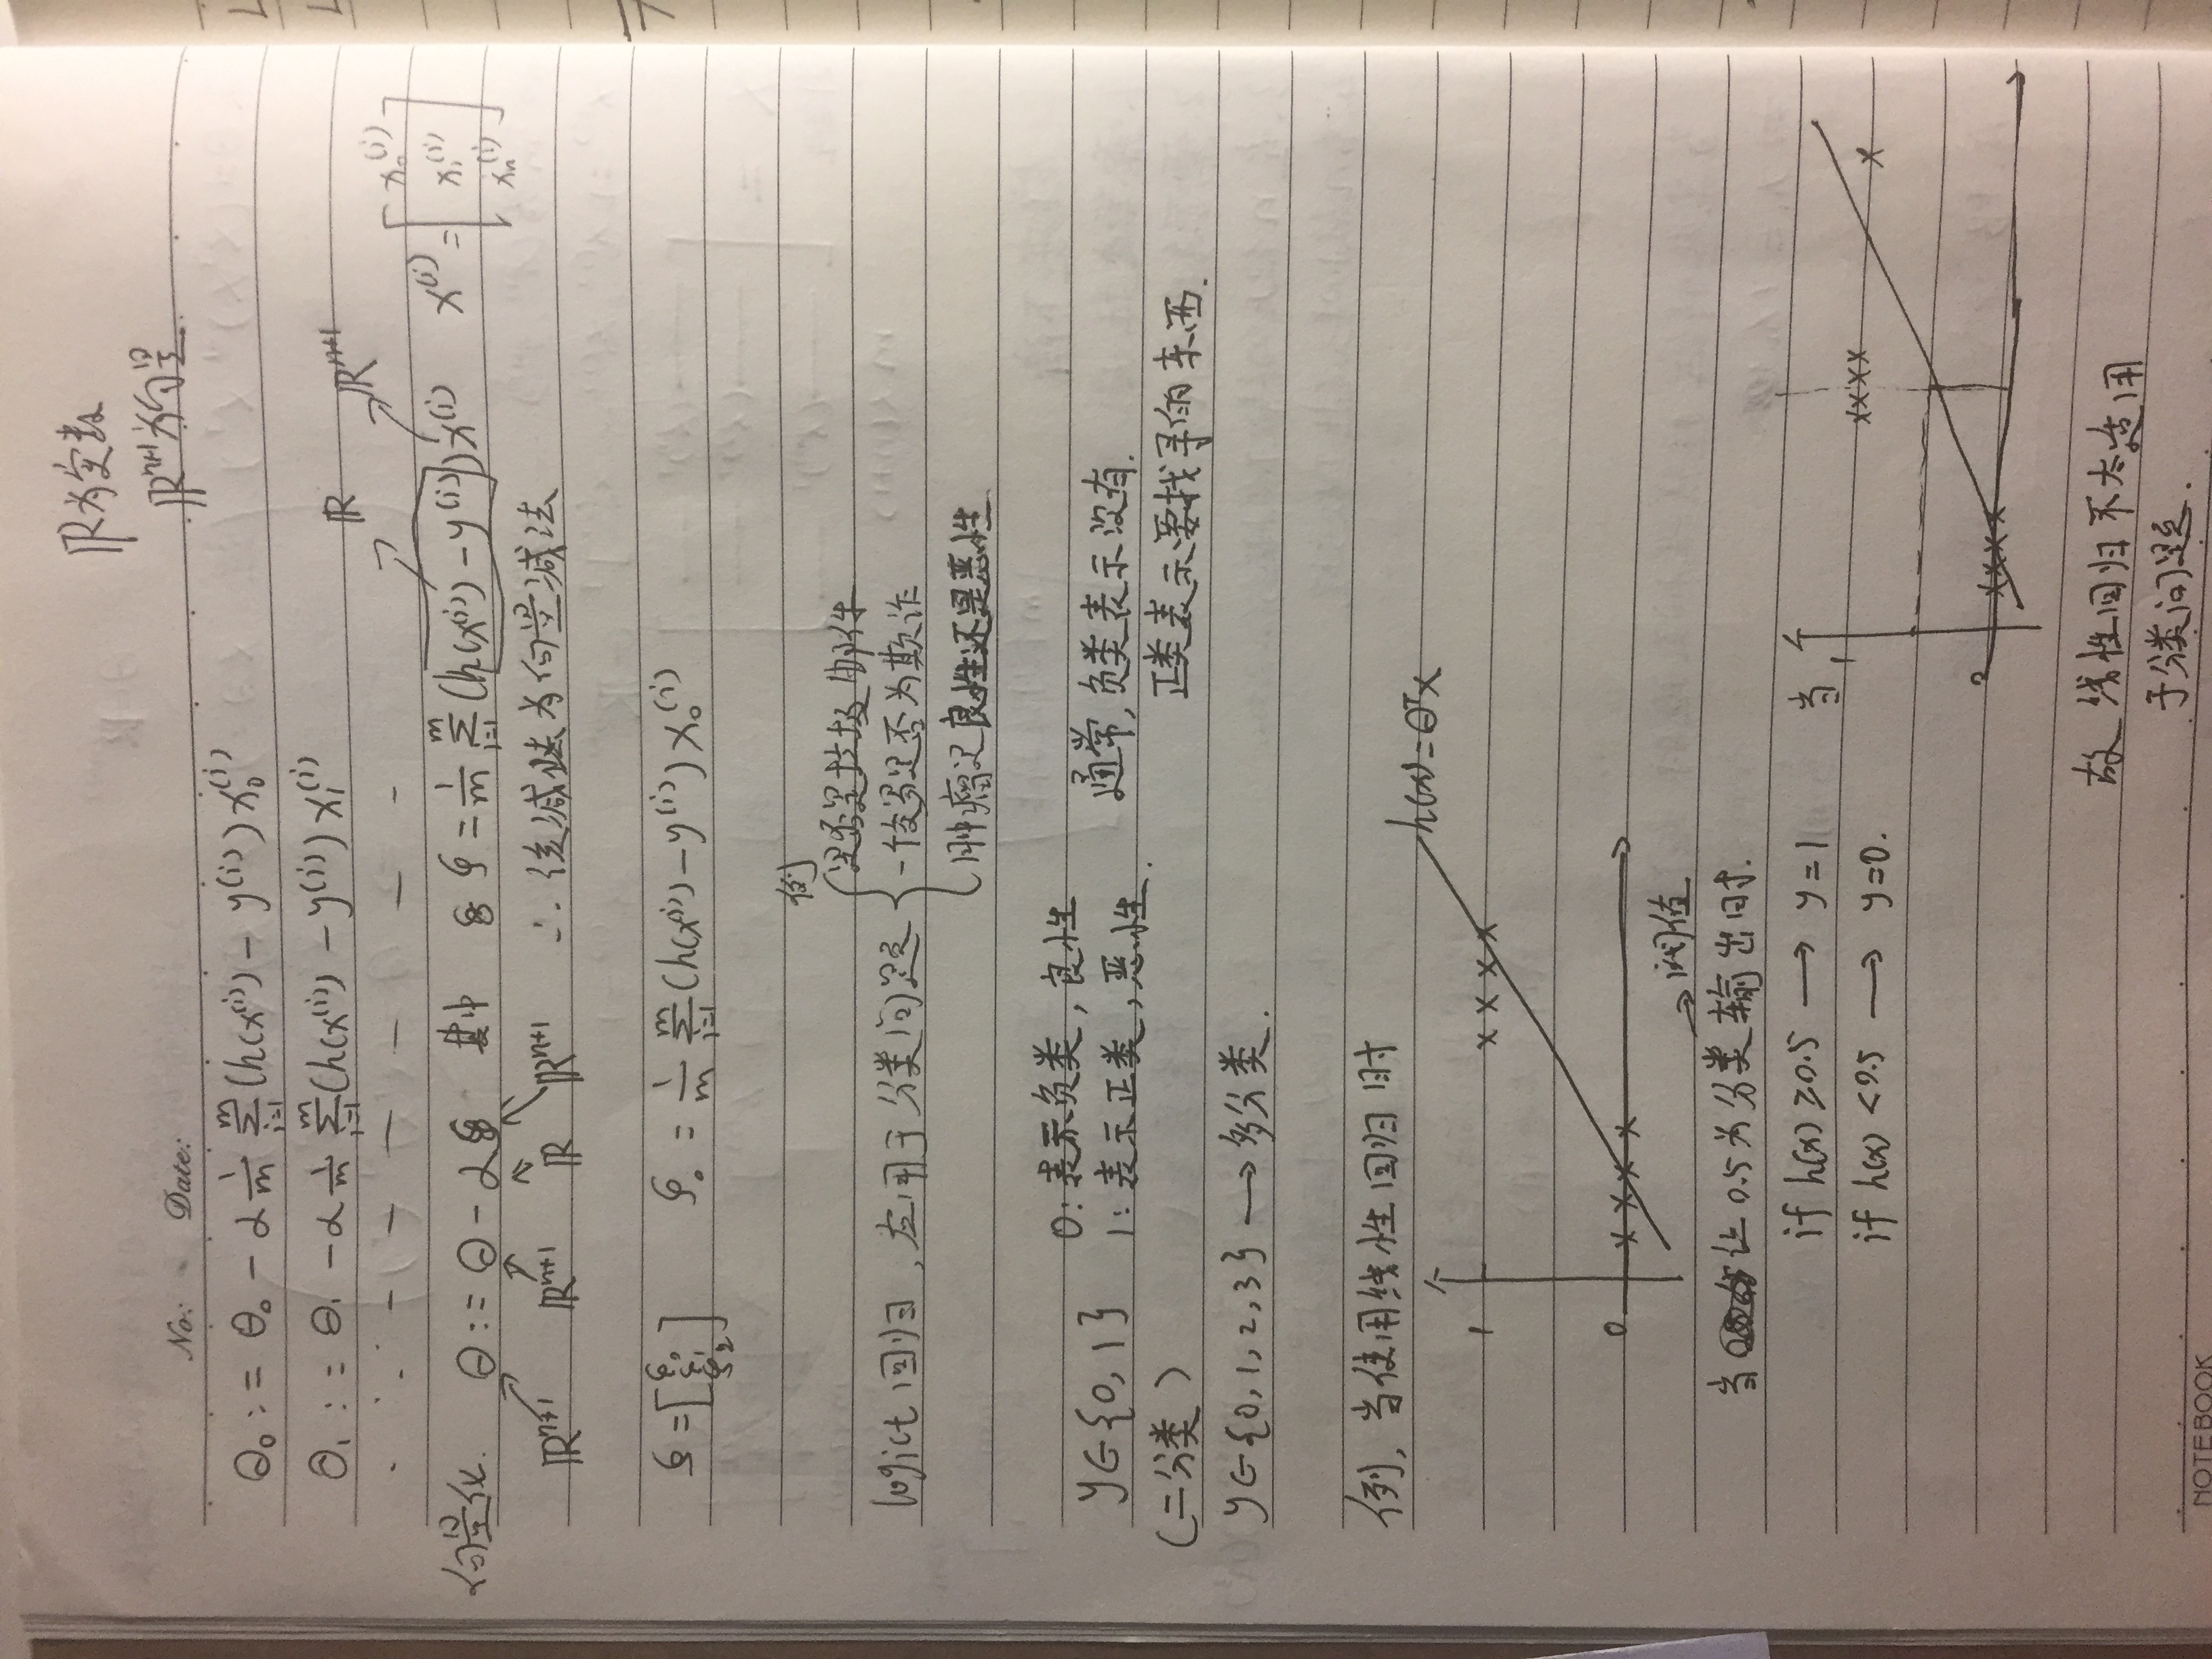 ℝ为实数
ℝⁿ⁺¹为向量
No: Date:
θ₀ := θ₀ - α 1/m Σᵢ₌₁ᵐ (h(x⁽ⁱ⁾) - y⁽ⁱ⁾) x₀⁽ⁱ⁾
θ₁ := θ₁ - α 1/m Σᵢ₌₁ᵐ (h(x⁽ⁱ⁾) - y⁽ⁱ⁾) x₁⁽ⁱ⁾
ℝ ℝⁿ⁺¹
向量化. θ := θ - αδ 其中 δ = 1/m Σᵢ₌₁ᵐ (h(x⁽ⁱ⁾) - y⁽ⁱ⁾) x⁽ⁱ⁾ x⁽ⁱ⁾ = [x₀⁽ⁱ⁾ x₁⁽ⁱ⁾ xₙ⁽ⁱ⁾]
ℝⁿ⁺¹ ℝⁿ⁺¹ ℝ ℝⁿ⁺¹ ∴ 该减法为向量减法
δ = [δ₀ δ₁ δ₂] δ₀ = 1/m Σᵢ₌₁ᵐ (h(x⁽ⁱ⁾) - y⁽ⁱ⁾) x₀⁽ⁱ⁾
例
是否是垃圾邮件
logict 回归, 应用于分类问题 一个交易是否为欺诈
肿瘤是良性还是恶性
0: 表示负类, 良性
y∈{0, 1} 1: 表示正类, 恶性. 通常, 负类表示没有.
(二分类) 正类表示要找寻的东西.
y∈{0, 1, 2, 3} → 多分类.
例, 当使用线性回归时
h(x) = θᵀx
1
0
→ 阈值
当 让 0.5 为分类输出时.
if h(x) ≥ 0.5 → y = 1
if h(x) < 0.5 → y = 0.
当 1
0
故 线性回归不太适用
于分类问题.
NOTEBOOK